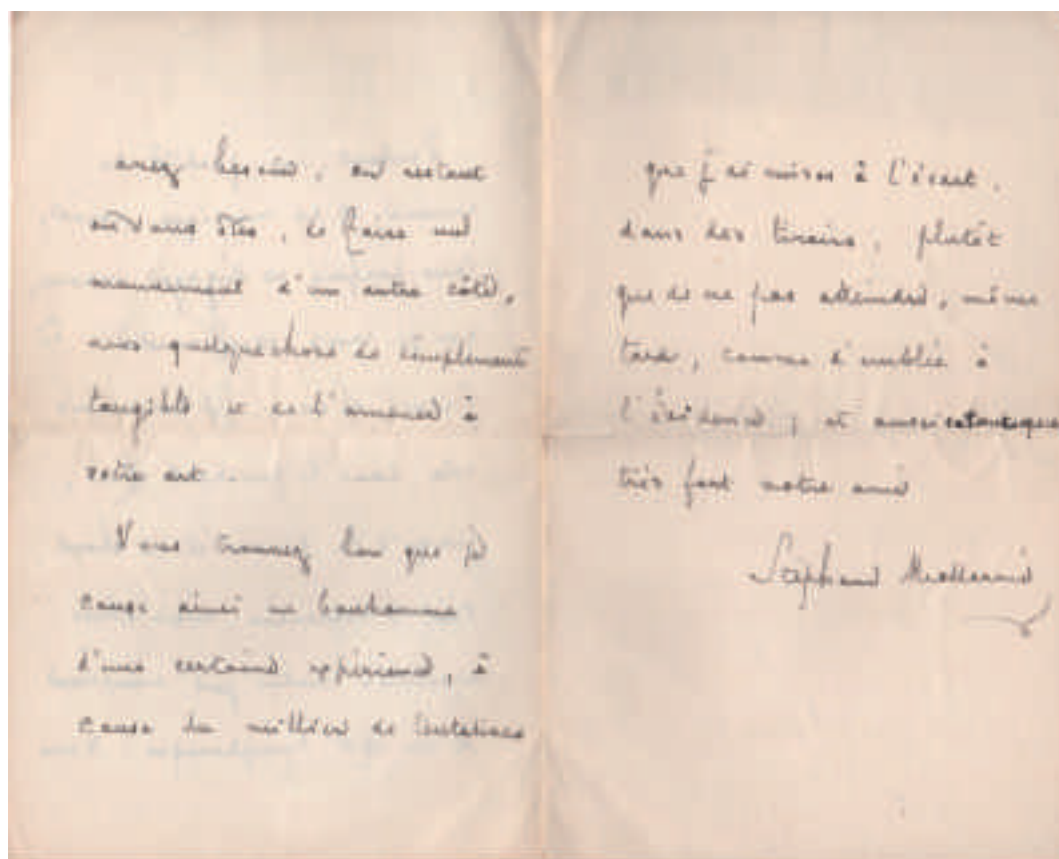 avez besoin, en restant
où vous êtes, de faire un
mouvement d'un autre côté,
vers quelque chose de simplement
tangible et de l'amener à
votre art.
Vous trouvez bon que je
cause ainsi en bonhomme
d'une certaine expérience, à
cause du millier de tentatives
que j'ai mises à l'écart,
dans des tiroirs, plutôt
que de ne pas atteindre, même
tard, comme d'emblée à
l'évidence ; et aussi
très fort notre ami
Stéphane Mallarmé